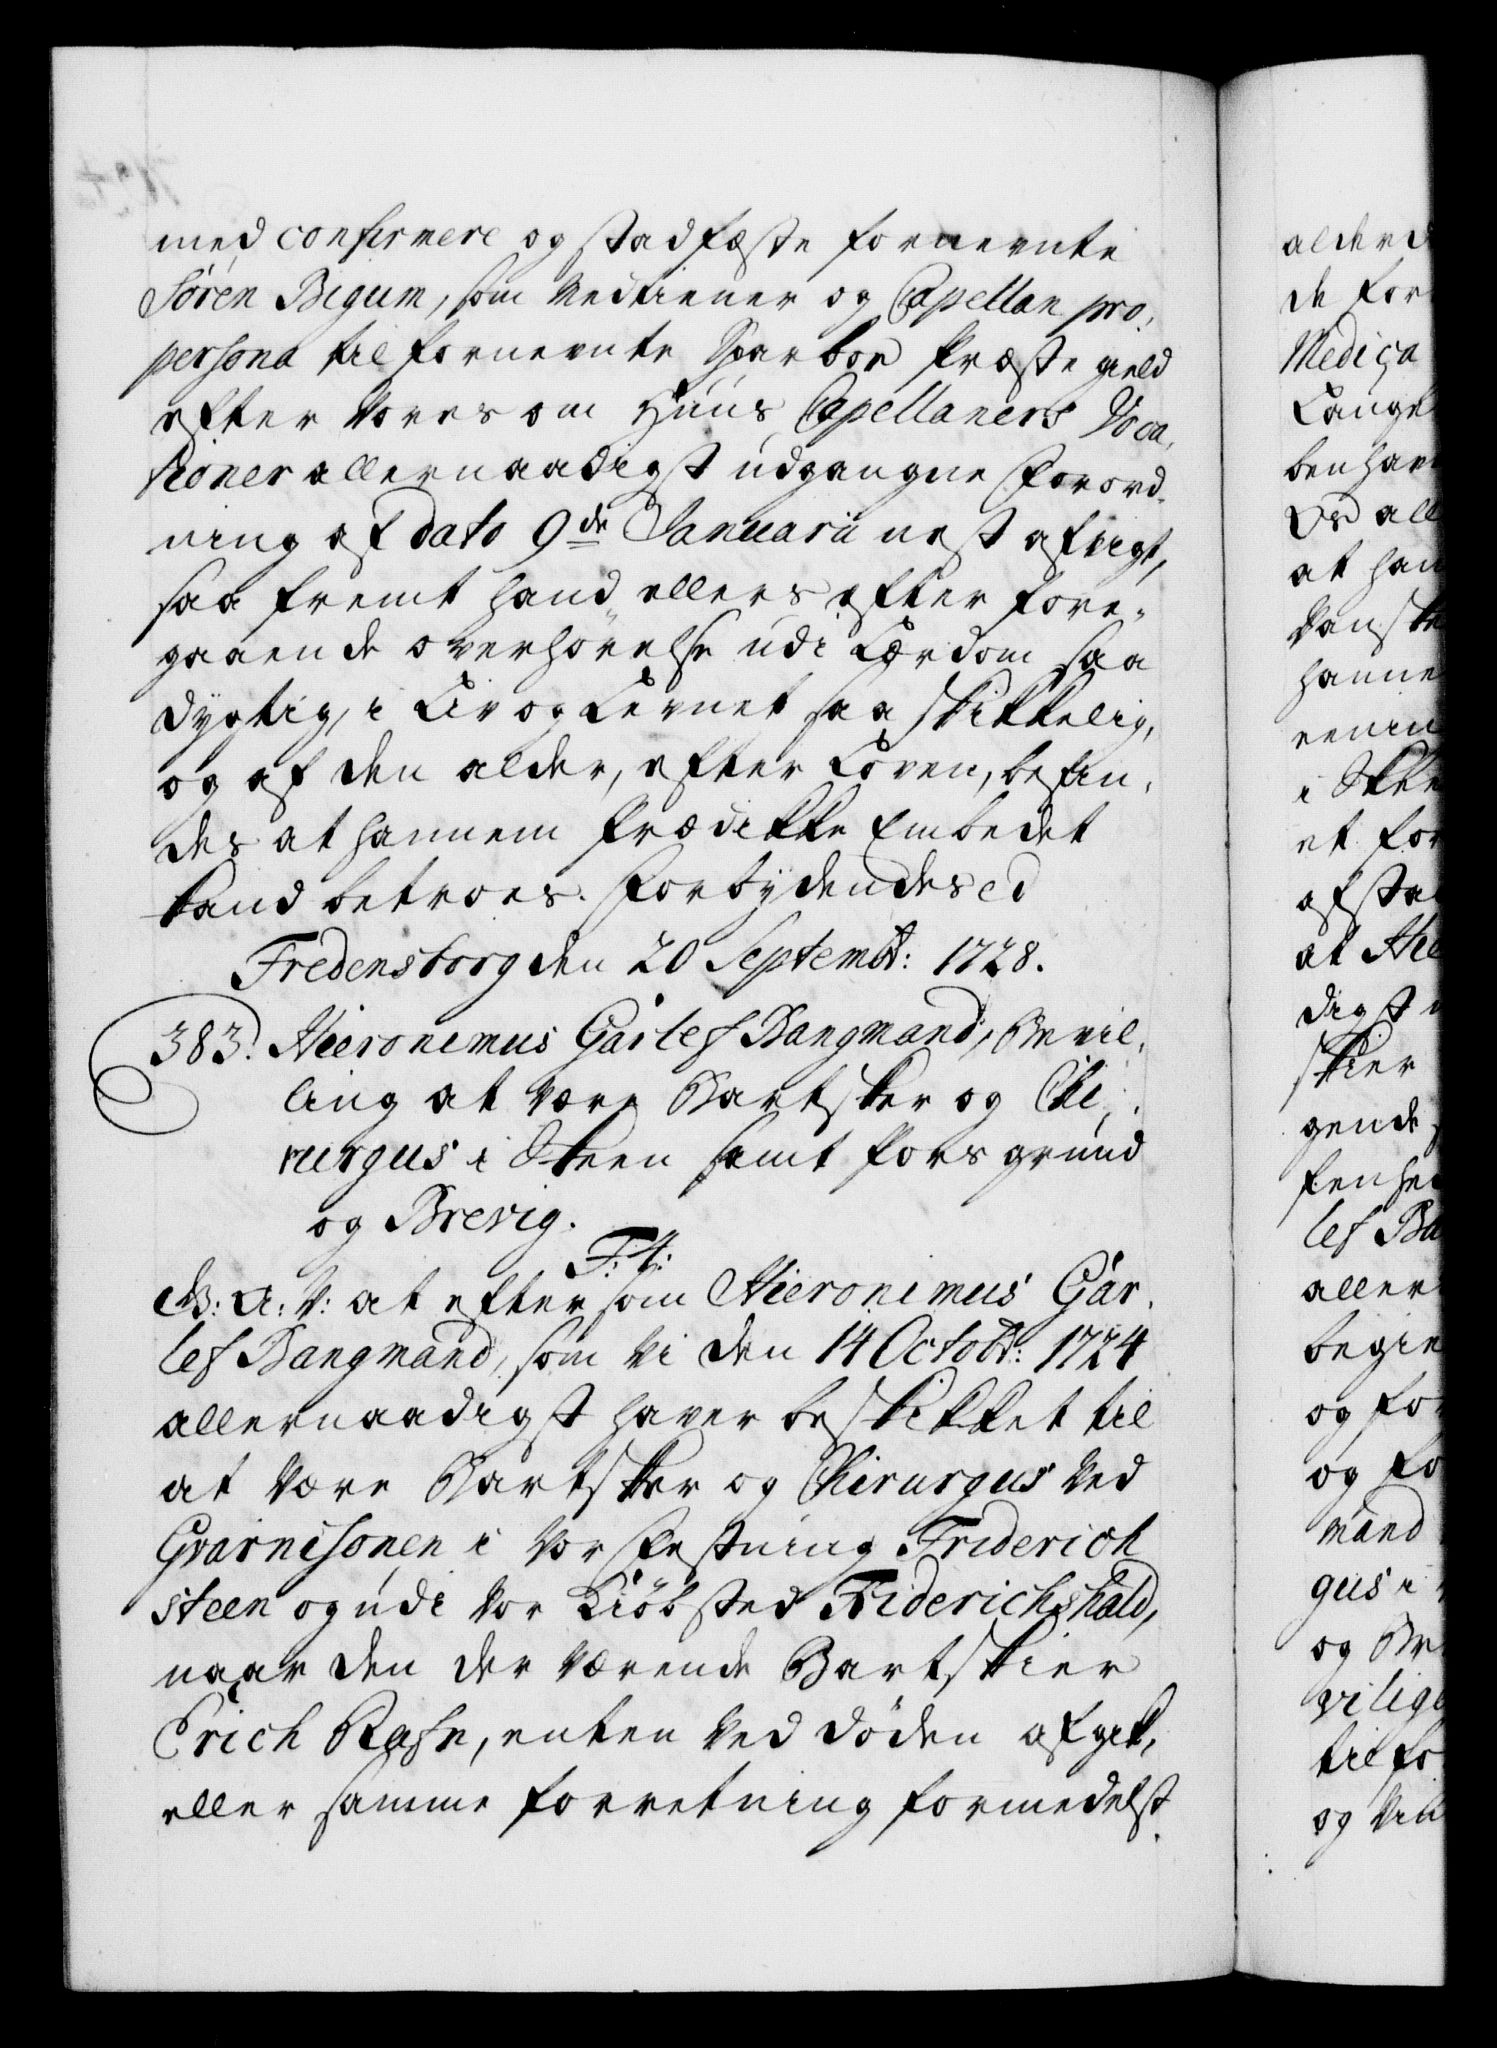 med confirmere og stadfæste fornevnte
Sören Bigum, som Medtiener og Capellan pro
persona til fornevnte Sparboe Præstegield
efter Vores om Huus Capellaners Voca,
tioner allernaadigst udgangne Forord,
ning af Dato 9de Januarii nest afvigt,
saa fremt hand ellers efter fore,
gaaende overhörelse udi Lærdom saa
dygtig, i Liv og Levnet saa skikkelig,
og af den alder, efter Loven, befin,
des at hannem Prædikke Embedet
kand betroes. Forbydendes ed
Fredensborg den 20 Septembr: 1728.
383. Hieronimus Garlef Bangmand, Bevil,
ling at være Bartsker og Chi,
rurgus i Skeen samt Porsgrund
og Brevig.
F: 4:
G: A: V: at eftersom Hieronimus Gar,
lef Bangmand, som Vi den 14 Octobr: 1724
allernaadigst haver beskikket til
at være Bartsker og Chirurgus ved
Gvarnisonen i Vor Festning Friderich
steen og udi Vor Kiöbsted Friderichshald,
naar den der værende Bartskier
Erich Rafn, enten ved döden afgik,
eller samme forretning formedelst
alderd
de for
Medica
Lauge
benhav
Os all
at han
Vanske
hanne
i Skee
et for
afsta
at Hie
digst
skier
gende
lef Ba
aller
begie
og for
og fo
mand
gus i
og Br
vilige
til fo
og Vil